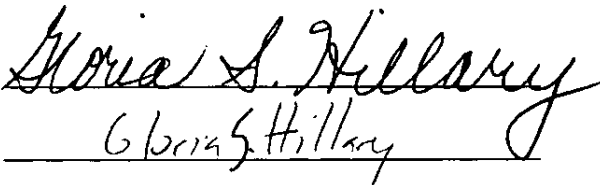 Gloria S. Hillary
Gloria S. Hillary